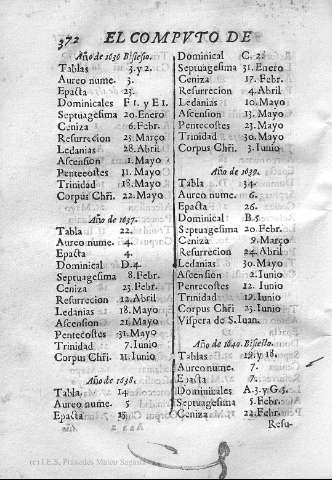 372 EL COMPVTO DE
Año de 1636 Bisiesto.
Tablas 3. y 2.
Aureo nume. 3.
Epacta 23.
Dominicales F 1. y E 1.
Septuagesima 20. Enero
Ceniza 6. Febr.
Resurreccion 23. Março
Ledanias 28. Abril
Ascension 1. Mayo
Pentecostes 11. Mayo
Trinidad 18. Mayo
Corpus Chri. 22. Mayo
Año de 1637.
Tabla 22.
Aureo nume. 4.
Epacta 4.
Dominical D. 4.
Septuagesima 8. Febr.
Ceniza 25. Febr.
Resurrecion 12. Abril
Ledanias 18. Mayo
Ascension 21. Mayo
Pentecostes 31. Mayo
Trinidad 7. Iunio
Corpus Chri. 11. Iunio
Año de 1638.
Tabla. 14
Aureo nume. 5
Epacta 15.
Dominical C. 2.
Septuagesima 31. Enero
Ceniza 17. Febr.
Resurrecion 4. Abril
Ledanias 10. Mayo
Ascension 13. Mayo
Pentecostes 23. Mayo
Trinidad 30. Mayo
Corpus Chri. 3. Iunio
Año de 1639.
Tabla 34.
Aureo nume. 6.
Epacta 26.
Dominical B 5
Septuagesima 20. Febr.
Ceniza 9. Março
Resurrecion 24. Abril
Ledanias 30. Mayo
Ascension 2. Iunio
Pentecostes 12. Iunio
Trinidad 19. Iunio
Corpus Chri 23. Iunio
Vispera de S. Iuan.
Año de 1640. Bisiesto.
Tablas 19. y 18.
Aureo nume. 7.
Epacta 7.
Dominicales A 3. y G 5.
Septuagesima 5. Febr.
Ceniza 22. Febr.
Resu-
(c) I.E.S. Práxedes Mateo Sagasta